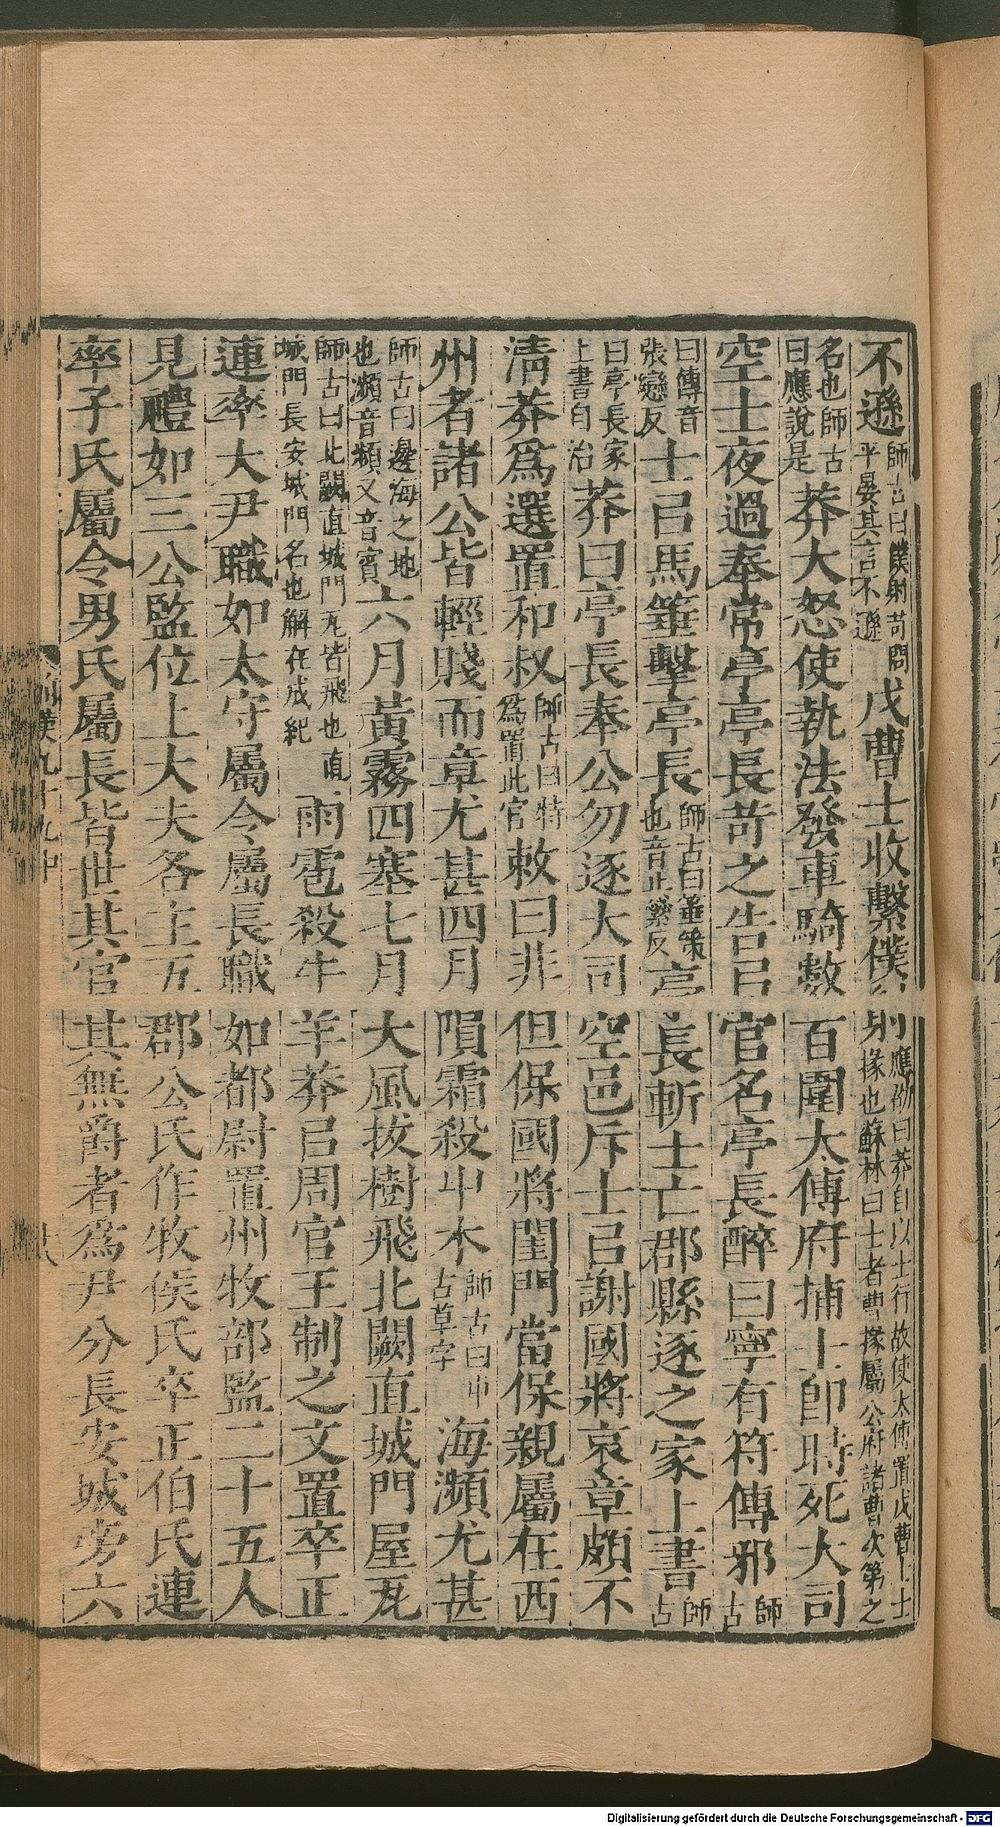 不遜師古曰僕射苛問平晏其言不遜戊曹士收繫僕射應劭曰莽自以土行故使太傅置戊曹士士掾也蘇林曰士者曹掾屬公府諸曹次第之
名也師古曰應說是莽大怒使執法發車騎數百圍太傅府捕士即時死大司
空士夜過奉常亭亭長苛之告㠯官名亭長醉曰寧有符傳邪師古
曰傳音張戀反士㠯馬箠擊亭長師古曰箠策也音止繠反亭長斬士亡郡縣逐之家上書師古
曰亭長家上書自治莽曰亭長奉公勿逐大司空邑斥士㠯謝國將哀章頗不
清莽爲選置和叔師古曰特爲置此官敕曰非但保國將閨門當保親屬在西
州者諸公皆輕賤而章尤甚四月隕霜殺屮木師古曰屮古草字海瀕尤甚
師古曰邊海之地也瀕音頻又音賓六月黃霧四塞七月大風拔樹飛北闕直城門屋瓦
師古曰北闕直城門瓦皆飛也直城門長安城門名也解在成紀雨雹殺牛羊莽㠯周官王制之文置卒正
連率大尹職如太守屬令屬長職如都尉置州牧部監二十五人
見禮如三公監位上大夫各主五郡公氏作牧侯氏卒正伯氏連
率子氏屬令男氏屬長皆世其官其無爵者爲尹分長安城旁六
漢九十九中
Digitalisierung gefördert durch die Deutsche Forschungsgemeinschaft - DFG